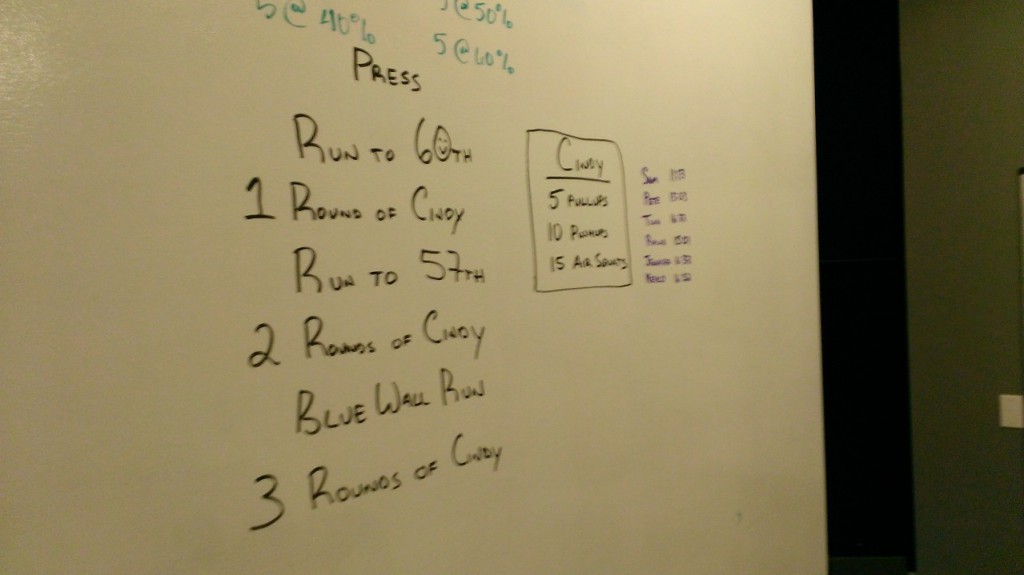 5 @ 40%
@ 50%
5 @ 60%
PRESS
RUN TO 60TH
1 ROUND OF CINDY
RUN TO 57TH
2 ROUNDS OF CINDY
BLUE WALL RUN
3 ROUNDS OF CINDY
CINDY
5 PULLUPS
10 PUSHUPS
15 AIR SQUATS